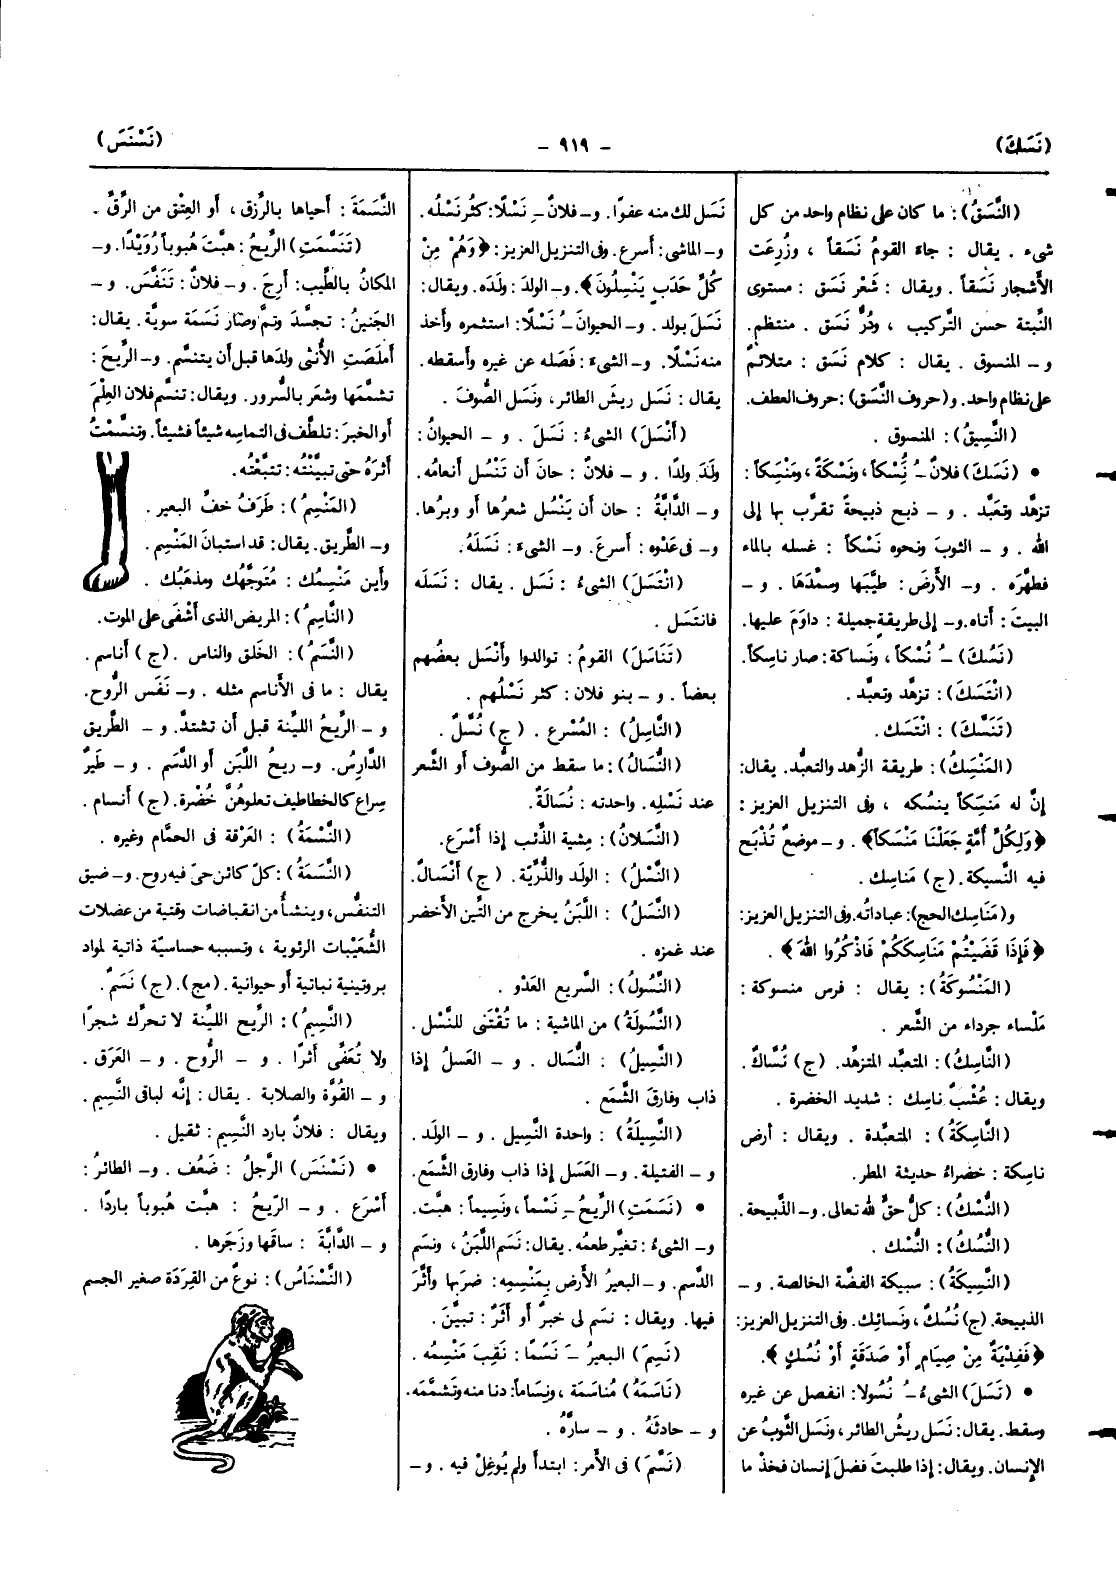 (نَسَكَ)
- ٩١٩ -
(نَسْنَسَ)
(النَّسَقُ): ما كان على نظام واحد من كل
شىء . يقال : جاء القومُ نَسَقاً ، وزُرِعَت
الأشجار نَسَقاً . ويقال : ثَغْر نَسَق : مستوى
النَّبتة حسن التركيب ، ودُرٌّ نَسَق . منتظم.
و – المنسوق . يقال : كلام نَسَق : متلائمٌ
على نظام واحد. و(حروف النَّسَق): حروف العطف.
(النَّسِيقُ): المنسوق .
• (نَسَكَ) فلانٌ ـُ نُسْكاً ، ونَسْكَةً ، ومَنْسِكاً :
تزهَّد وتعبَّد . و – ذبح ذبيحةً تقرَّب بها إلى
الله . و – الثوبَ ونحوه نَسْكاً : غسله بالماء
فطهَّره . و– الأرضَ : طيَّبها وسمَّدَها . و –
البيتَ : أتاه. و– إلى طريقةٍ جميلة : داوَمَ عليها.
(نَسُكَ) ـُ نُسْكاً ، ونَساكة : صار ناسِكاً.
(انْتَسَكَ): تزهَّد وتعبَّد .
(تَنَسَّكَ) : انْتَسَك .
(المَنْسِكُ) : طريقة الزُّهد والتعبُّد. يقال:
إنَّ له مَنسِكاً ينسُكه ، وفى التنزيل العزيز :
﴿وَلِكُلِّ أُمَّةٍ جَعَلْنَا مَنْسَكاً﴾ . و – موضعٌ تُذْبَح
فيه النَّسيكة . (ج) مَناسِك .
و(مَنَاسِك الحج): عباداتُه. وفى التنزيل العزيز:
﴿فَإِذَا قَضَيْتُمْ مَنَاسِكَكُمْ فَاذْكُرُوا اللهَ﴾ .
(المَنْسُوكَةُ) : يقال : فرس منسوكة :
مَلْساء جرداء من الشَّعر .
(النَّاسِكُ) : المتعبِّد المتزهِّد. (ج) نُسَّاكٌ.
ويقال : عُشْبٌ ناسِك : شديد الخضرة .
(النَّاسِكَةُ) : المتعبِّدة . ويقال : أرض
ناسِكة : خضراءُ حديثة المطر.
(النُّسُكُ) : كلُّ حقٍّ لله تعالى. و– الذَّبيحة.
(النُّسْكُ) : النُّسُك .
(النَّسِيكَةُ) : سبيكة الفضَّة الخالصة . و –
الذبيحة. (ج) نُسُكٌ ، ونَسائِك. وفى التنزيل العزيز:
﴿فَفِدْيَةٌ مِنْ صِيَامٍ أَوْ صَدَقَةٍ أَوْ نُسُكٍ﴾.
• (نَسَلَ) الشىءُ ـُ نُسُولا: انفصل عن غيره
وسقط. يقال: نَسَل ريشُ الطائر، ونَسَل الثَّوبُ عن
الإنسان. ويقال: إذا طلبتَ فضلَ إنسان فخذ ما
نَسَل لك منه عفوًا. و– فلانٌ ـِ نَسْلًا: كثُر نَسْلُه.
و– الماشى: أسرع. وفى التنزيل العزيز: ﴿وَهُمْ مِنْ
كُلِّ حَدَبٍ يَنْسِلُونَ﴾. و– الولدَ : ولَدَه. ويقال:
نَسَلَ بولد . و– الحيوانَ ـُ نَسْلًا: استثمره وأخذ
منه نَسْلًا. و– الشىءَ : فَصَله عن غيره وأسقطه.
يقال : نَسَل ريش الطائر، ونَسَل الصُّوفَ .
(أَنْسَلَ) الشىءُ : نَسَلَ . و – الحيوانُ :
ولَدَ ولدًا . و – فلانٌ : حانَ أن تَنْسُل أنعامُه.
و– الدَّابَّةُ : حان أن يَنْسُل شعرُها أو وبرُها.
و– فى عَدْوِه : أسرعَ. و– الشىءَ : نَسَلَهُ.
(انْتَسَلَ) الشىءُ : نَسَل . يقال : نَسَلَه
فانتَسَل .
(تَنَاسَلَ) القومُ : توالدوا وأَنْسَل بعضُهم
بعضاً . و – بنو فلان : كثر نَسْلُهم .
(النَّاسِلُ) : المُسْرع . (ج) نُسَّلٌ .
(النُّسَالُ) : ما سقط من الصُّوف أو الشَّعر
عند نَسْلِه. واحدته : نُسَالَةٌ.
(النَّسَلانُ) : مِشية الذِّئب إذا أسْرَع.
(النَّسْلُ) : الولَد والذُّرِّيَّة. (ج) أَنْسَالٌ.
(النَّسَلُ) : اللَّبَنُ يخرج من التِّين الأخضر
عند غمزه .
(النَّسُولُ) : السَّريع العَدْو .
(النَّسُولَةُ) من الماشية : ما تُقْتَنى للنَّسْل.
(النَّسِيلُ) : النُّسَال . و – العَسلُ إذا
ذاب وفارقَ الشَّمَع .
(النَّسِيلَةُ) : واحدة النَّسِيل . و – الولَد .
و – الفتيلة. و– العَسَل إذا ذاب وفارق الشَّمَع.
• (نَسَمَتِ) الرِّيحُ ـِ نَسْماً ، ونَسِيماً : هبَّت.
و– الشىءُ : تغيَّر طعمُه. يقال: نَسَم اللَّبَنُ ، ونسَم
الدَّسم. و– البعيرُ الأرضَ بِمَنْسِمِه: ضربَها وأَثَّرَ
فيها. ويقال : نسَم لى خبرٌ أو أثَرٌ : تبيَّنَ .
(نَسِمَ) البعيرُ ـَ نَسَمًا : نَقِبَ مَنْسِمُه .
(نَاسَمَهُ) مُناسَمَة ، ونِسَاماً: دنا منه وتَشمَّمَه.
و – حادثَهُ . و – سارَّهُ .
(نَسَّمَ) فى الأمر: ابتدأ ولم يُوغِلْ فيه . و –
النَّسَمَةَ : أحياها بالرِّزق ، أو العِتْق من الرِّقِّ .
(تَنَسَّمَتِ) الرِّيحُ: هبَّتْ هُبوباً رُوَيْدًا. و–
المكانُ بالطِّيب: أرِجَ . و– فلانٌ : تَنَفَّسَ. و –
الجَنينُ : تجسَّدَ وتمَّ وصَار نَسَمة سويَّة. يقال:
أملَصَتِ الأُنثى ولدَها قبل أن يتنسَّم. و– الرِّيحَ :
تشمَّمَها وشعَر بالسُّرور. ويقال: تنسَّم فلان العِلْمَ
أو الخبرَ: تلطَّف فى التماسِه شيئاً فشيئاً. وتنسَّمْتُ
أثرَهُ حتى تبيَّنْتُه : تتبَّعْتُه.
(المَنْسِمُ) : طَرَفُ خفِّ البعير .
و– الطَّريق. يقال: قد استبانَ المَنْسِم.
وأين مَنْسِمُك : مُتوَجَّهُك ومذهَبُك .
(النَّاسِمُ) : المريض الذى أشْفَى على الموت.
(النَّسَمُ) : الخَلق والناس . (ج) أناسم.
يقال : ما فى الأناسم مثله . و– نَفَس الرُّوح.
و – الرِّيحُ الليِّنة قبل أن تشتدَّ. و – الطَّريق
الدَّارِسُ. و– ريحُ اللَّبَن أو الدَّسَم . و – طَيرٌ
سِراع كالخطاطيف تعلوهُنَّ خُضْرة. (ج) أنسام .
(النَّسْمَةُ) : العَرْقة فى الحمَّام وغيره .
(النَّسَمَةُ) : كلّ كائن حىّ فيه روح. و– ضيق
التنفُّس، وينشأ من انقباضات وقتية من عضلات
الشُّعَيْبات الرئوية ، وتسببه حساسيّة ذاتية لمواد
بروتينية نباتية أو حيوانية. (مج). (ج) نَسَمٌ.
(النَّسِيمُ) : الرِّيح الليِّنة لا تحرِّك شجرًا
ولا تُعَفِّى أثرًا . و – الرُّوح . و – العَرَق .
و – القُوَّة والصلابة . يقال : إنَّه لباقى النَّسِيم .
ويقال : فلانٌ بارد النَّسِيم : ثقيل .
• (نَسْنَسَ) الرَّجلُ : ضَعُف . و– الطائرُ :
أسْرَع . و – الرِّيحُ : هبَّت هُبوباً باردًا .
و – الدَّابَّةَ : ساقَها وزَجَرها .
(النَّسْنَاسُ) : نوعٌ من القِرَدَة صغير الجسم